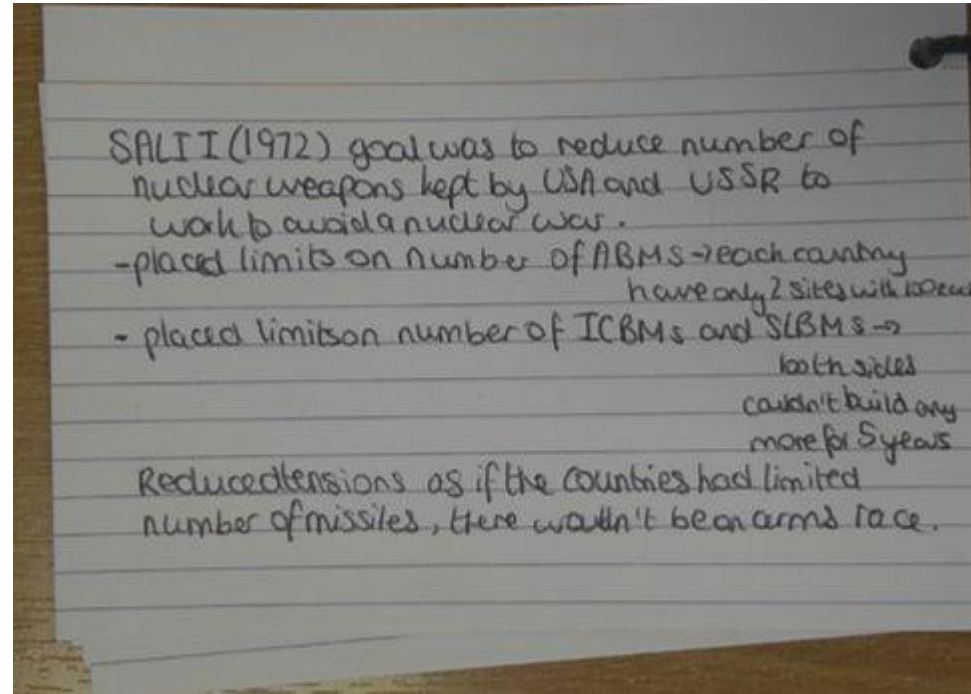 SALT I (1972) goal was to reduce number of
nuclear weapons kept by USA and USSR to
work to avoid a nuclear war.
- placed limits on number of ABMS → each country
have only 2 sites with 100 each
- placed limits on number of ICBMs and SLBMs →
both sides
couldn't build any
more for 5 years
Reduced tensions as if the countries had limited
number of missiles, there wouldn't be an arms race.